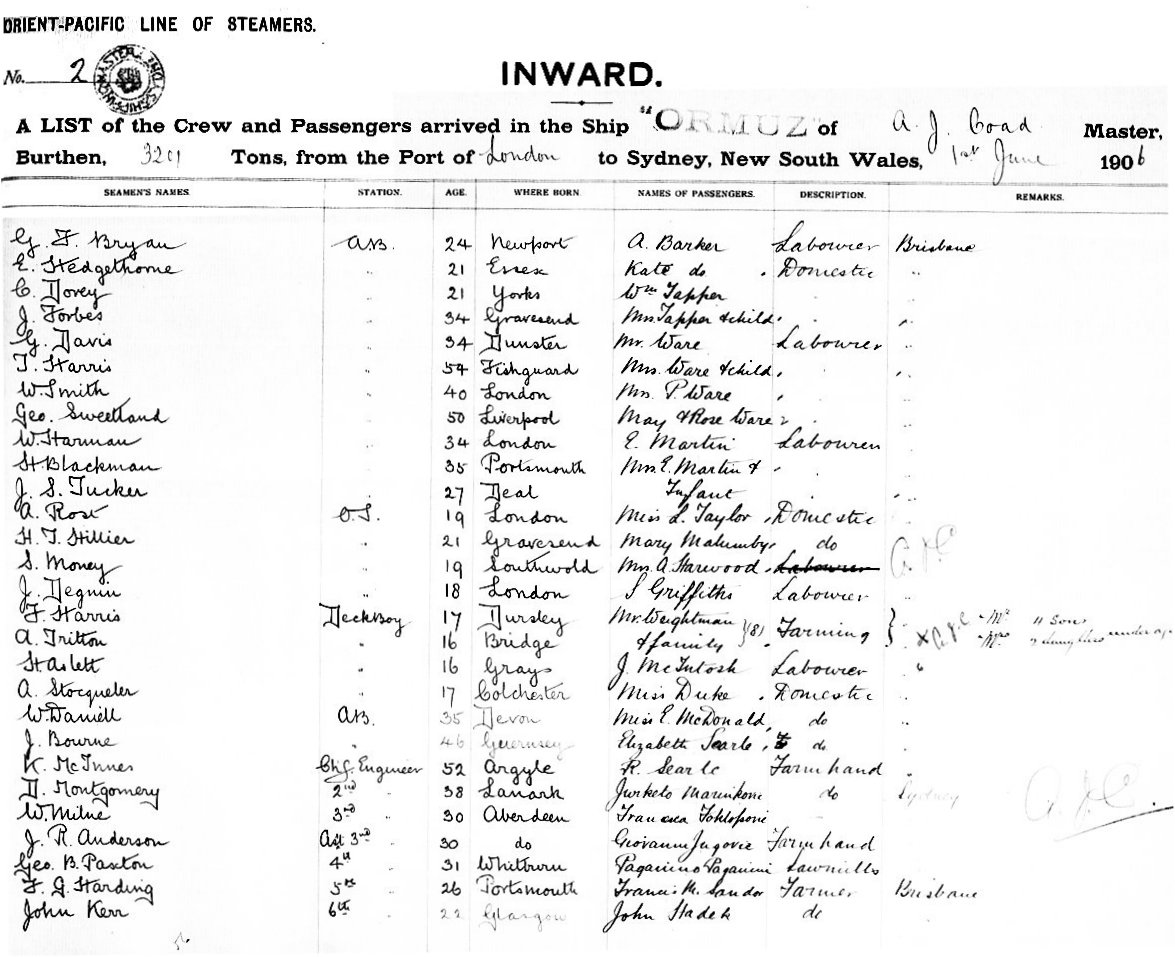 ORIENT-PACIFIC LINE OF STEAMERS.
No. 2
INWARD.
A LIST of the Crew and Passengers arrived in the Ship "ORMUZ" of A. J. Coad Master,
Burthen, 3201 Tons, from the Port of London to Sydney, New South Wales, 1st June 1906
SEAMEN'S NAMES. STATION. AGE. WHERE BORN. NAMES OF PASSENGERS. DESCRIPTION. REMARKS.
G. F. Bryan A.B. 24 Newport A. Barker Labourer Brisbane
E. Hedgethorne " 21 Essex Kate do Domestic "
C. Dovey " 21 Yorks Wm Tapper
J. Forbes " 34 Gravesend Mrs Tapper & child "
G. Davis " 34 Dunster Mr. Ware Labourer "
T. Harris " 54 Fishguard Mrs. Ware & child "
W. Smith " 40 London Mrs. P. Ware "
Geo. Sweetland " 50 Liverpool May & Rose Ware 2 "
W. Harman " 34 London E. Martin Labourer "
H. Blackman " 35 Portsmouth Mrs. E. Martin &
J. S. Tucker " 27 Deal Infant "
A. Rost O.S. 19 London Miss L. Taylor Domestic "
H. T. Hillier " 21 Gravesend Mary Malumby do
S. Money " 19 Southwold Mrs. A. Harwood Labourer
J. Degnin " 18 London S Griffiths Labourer "
F. Harris Deck Boy 17 Dursley Mr. Weightman (8) Farming
A. Tritton " 16 Bridge & family
H. Aslett " 16 Grays J. McIntosh Labourer "
A. Stocqueler " 17 Colchester Miss Duke Domestic "
W. Daniell A.B. 35 Devon Miss E. McDonald do "
J. Bourne " 46 Guernsey Elizabeth Searle do "
K. McInnes Chf. Engineer 52 Argyle R. Searle Farm hand "
D. Montgomery 2nd " 38 Lanark do Sydney
W. Milne 3rd " 30 Aberdeen
J. R. Anderson Ast 3rd " 30 do Giovanni Jugovic Farm hand
Geo. B. Paxton 4th " 31 Whitburn Paganino Paganini Sawmills
F. G. Harding 5th " 26 Portsmouth Francis M. Sandor Farmer Brisbane
John Kerr 6th " 22 Glasgow John Hadek do